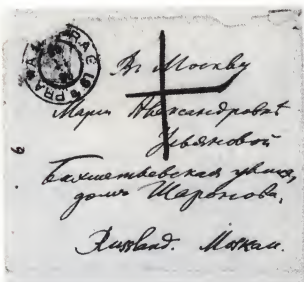 PRAG
Въ Москву
Маріи Александровнѣ
Ульяновой
Бахметьевская улица,
домъ Шаронова.
Russland. Moskau.